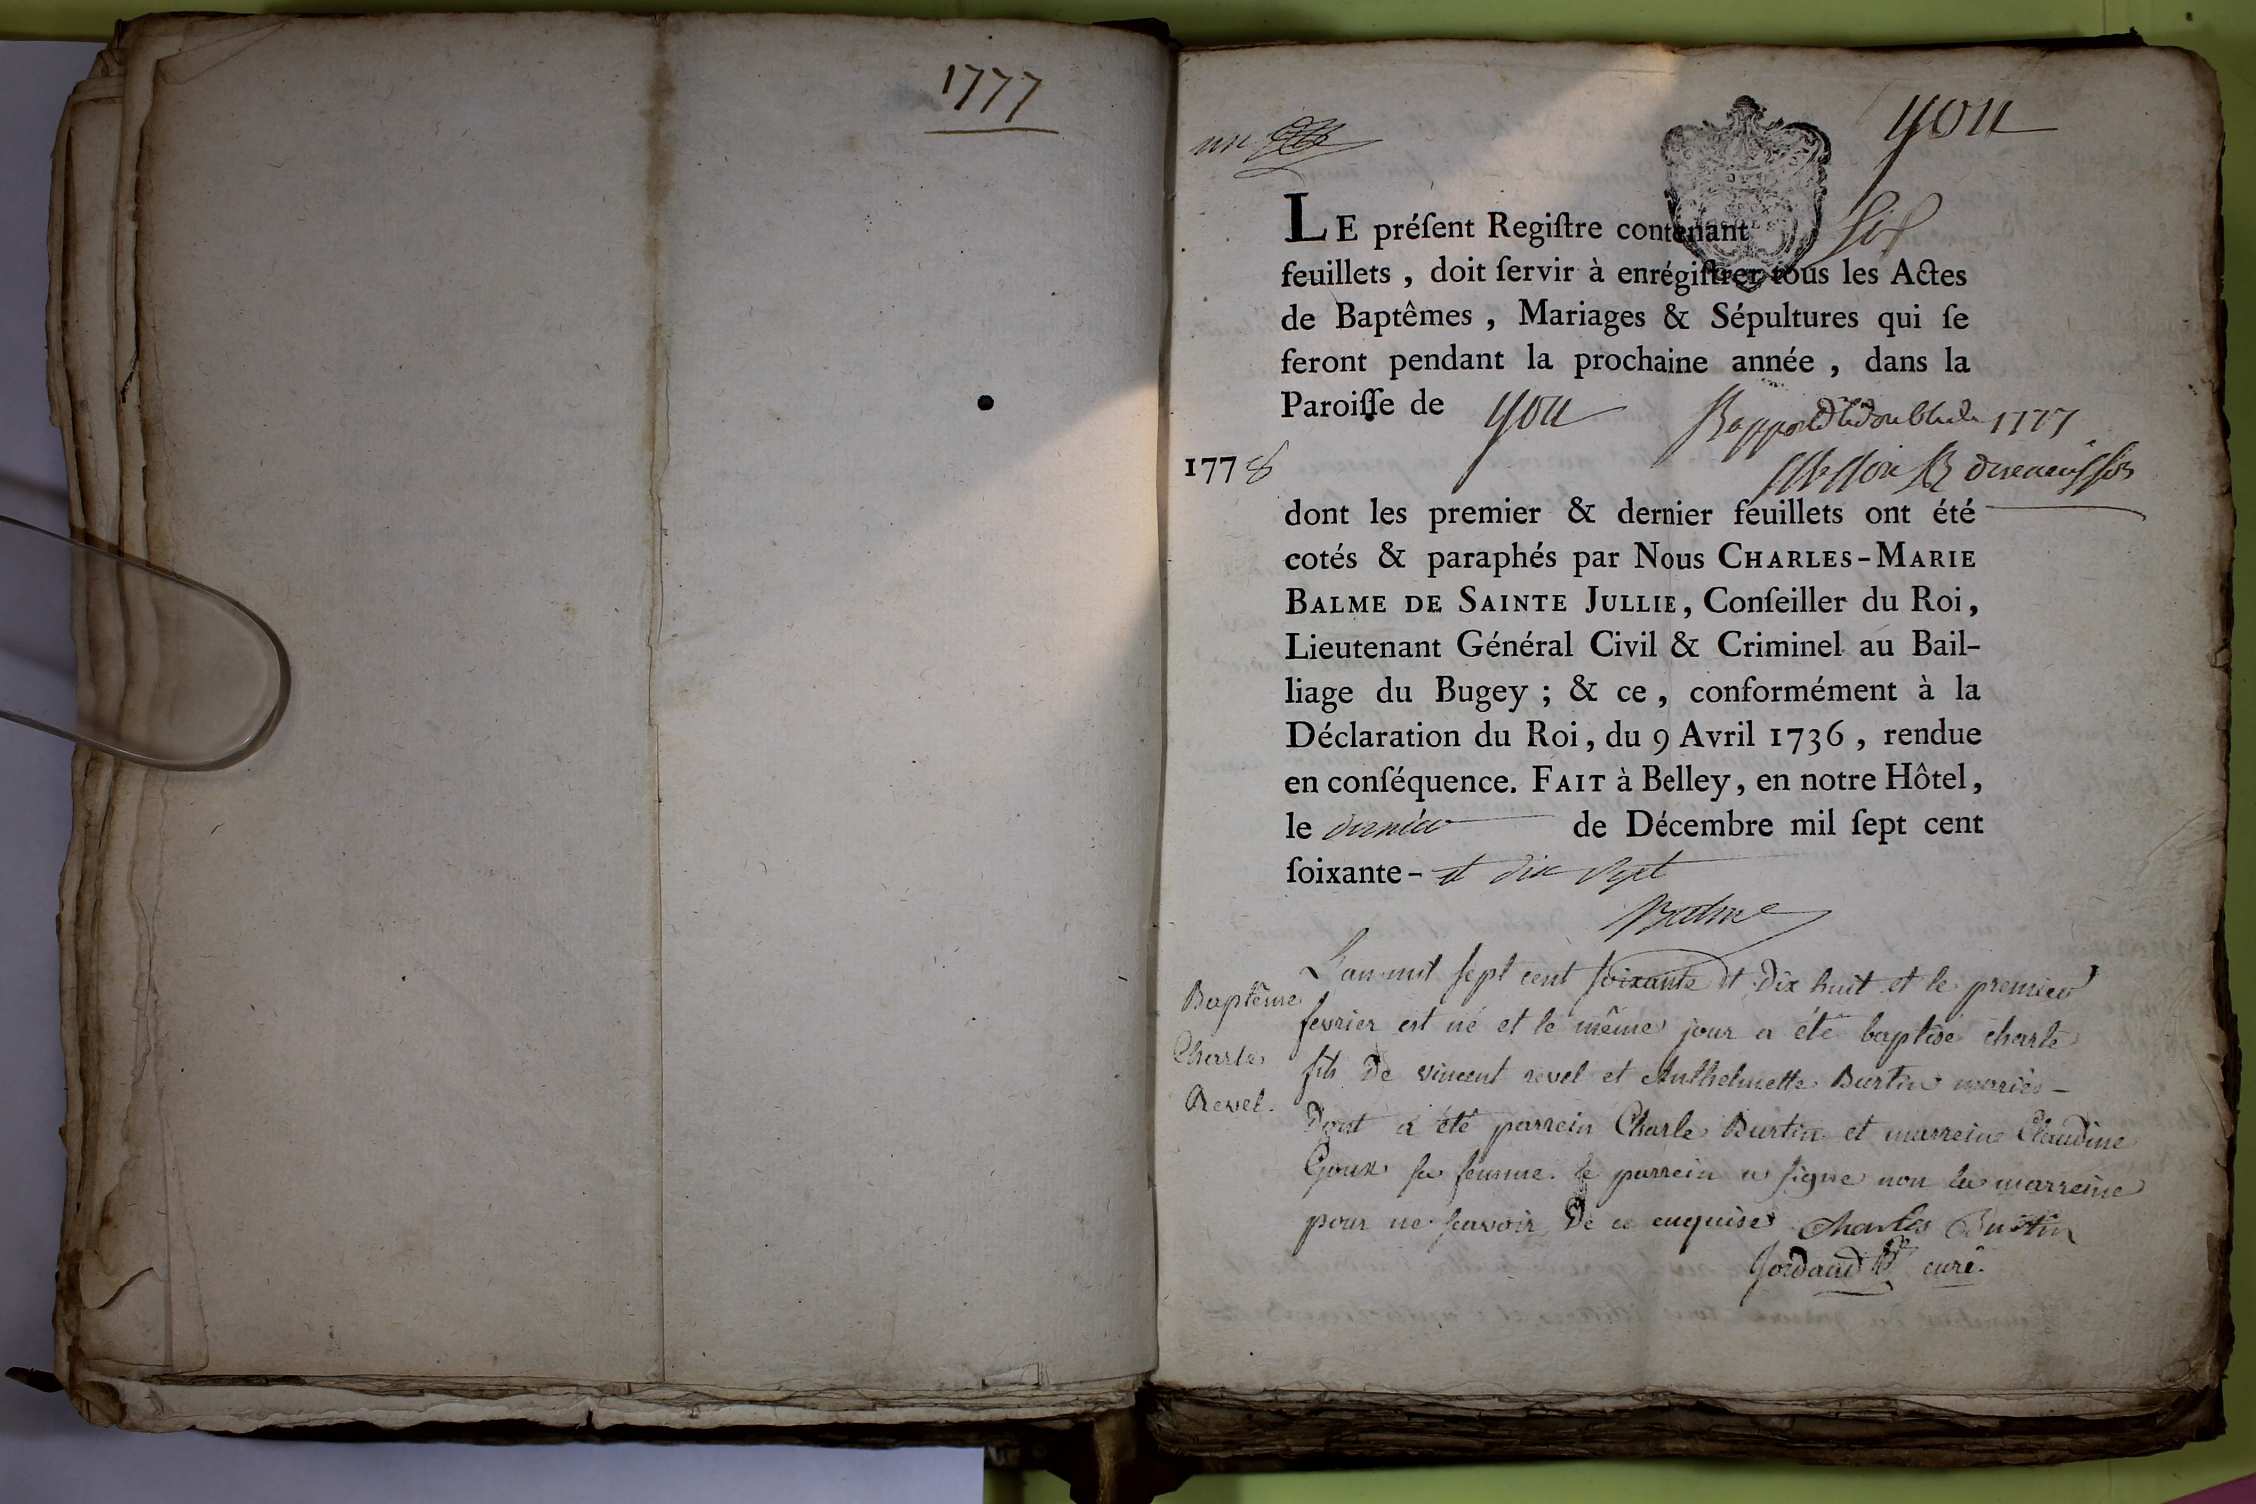 1777
un
you
LE préſent Regiſtre contenant six
feuillets, doit ſervir à enrégiſtrer tous les Actes
de Baptêmes, Mariages & Sépultures qui ſe
feront pendant la prochaine année, dans la
Paroiſſe de you
Rapporté le double de 1777
1778
dont les premier & dernier feuillets ont été
cotés & paraphés par Nous CHARLES-MARIE
BALME DE SAINTE JULLIE, Conſeiller du Roi,
Lieutenant Général Civil & Criminel au Bail-
liage du Bugey; & ce, conformément à la
Déclaration du Roi, du 9 Avril 1736, rendue
en conſéquence. FAIT à Belley, en notre Hôtel,
le dernier de Décembre mil ſept cent
ſoixante- et dix sept
Balme
L'an mil sept cent soixante et dix huit et le premier
Baptême
fevrier est né et le même jour a été baptisé charle
Charle
fils de vincent revel et Anthelmette Burtin mariés
Revel.
Dont a été parrein Charle Burtin et marreine Claudine
Goux sa femme. le parrein a signé non la marreine
pour ne sçavoir de ce enquise Charles Burtin
Jordand curé.